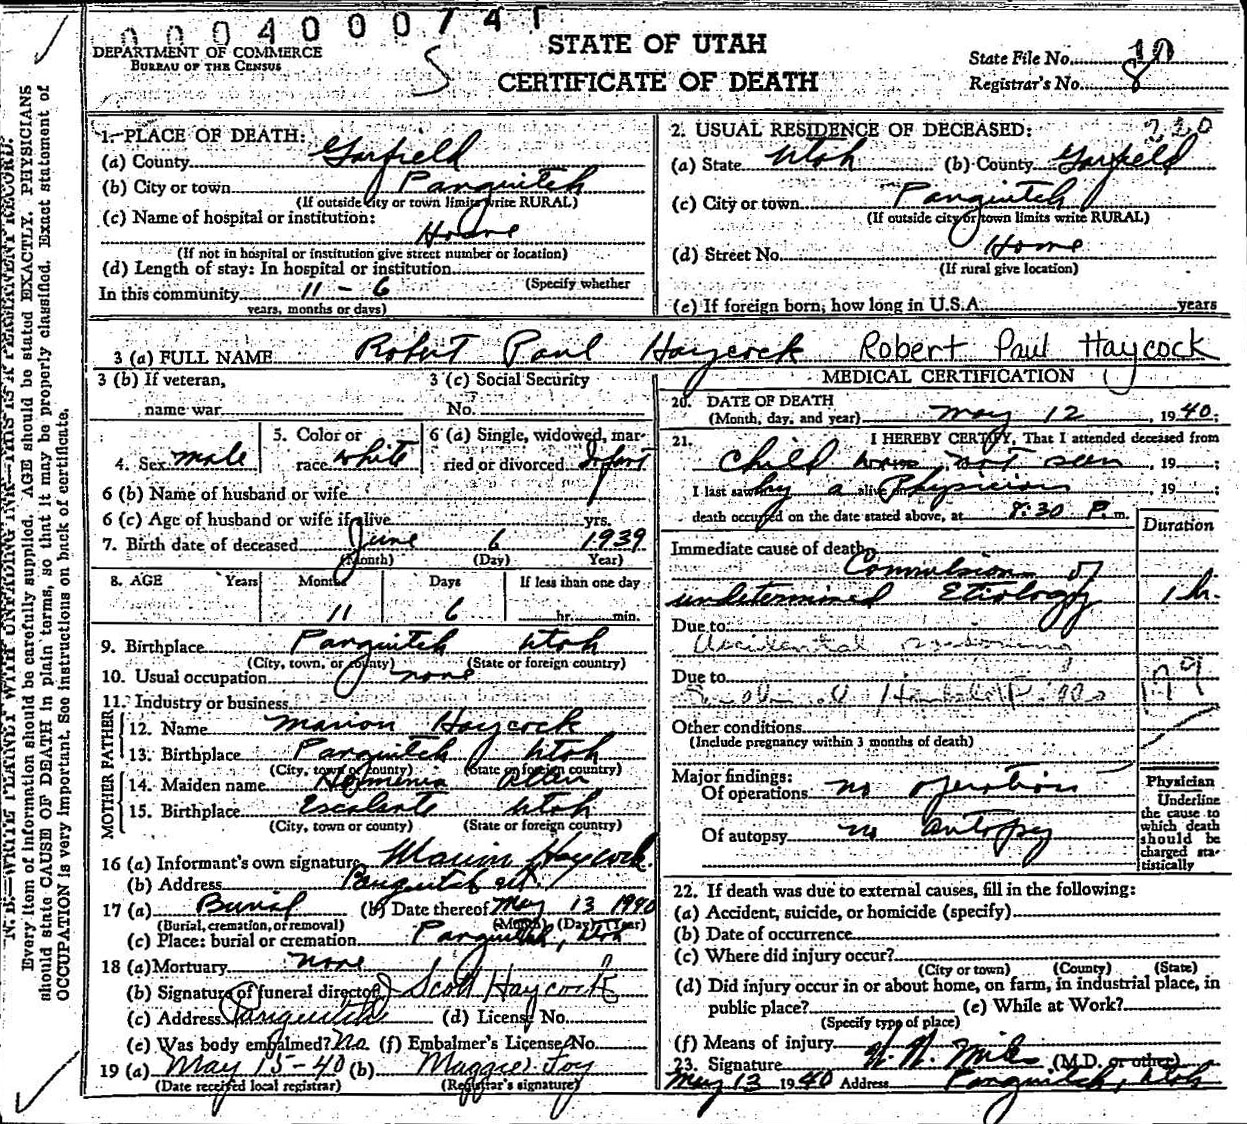 0004000741
DEPARTMENT OF COMMERCE
BUREAU OF THE CENSUS
STATE OF UTAH
CERTIFICATE OF DEATH
State File No.
Registrar's No. 8
N. B.—WRITE PLAINLY WITH UNFADING INK—THIS IS A PERMANENT RECORD.
Every item of information should be carefully supplied. AGE should be stated EXACTLY. PHYSICIANS
should state CAUSE OF DEATH in plain terms, so that it may be properly classified. Exact statement of
OCCUPATION is very important. See instructions on back of certificate.
1. PLACE OF DEATH:
(a) County Garfield
(b) City or town Panguitch
(If outside city or town limits write RURAL)
(c) Name of hospital or institution:
Home
(If not in hospital or institution give street number or location)
(d) Length of stay: In hospital or institution
(Specify whether
In this community 11 - 6
years, months or days)
2. USUAL RESIDENCE OF DECEASED: 220
(a) State Utah (b) County Garfield
(c) City or town Panguitch
(If outside city or town limits write RURAL)
(d) Street No. Home
(If rural give location)
(e) If foreign born, how long in U.S.A. years
3 (a) FULL NAME Robert Paul Haycock Robert Paul Haycock
3 (b) If veteran,
name war
3 (c) Social Security
No.
4. Sex male
5. Color or
race white
6 (a) Single, widowed, mar-
ried or divorced Infant
6 (b) Name of husband or wife
6 (c) Age of husband or wife if alive yrs.
7. Birth date of deceased June 6 1939
(Month) (Day) Year)
8. AGE Years Months Days If less than one day
11 6 hr. min.
9. Birthplace Panguitch Utah
(City, town, or county) (State or foreign country)
10. Usual occupation none
11. Industry or business
FATHER
12. Name Marion Haycock
13. Birthplace Panguitch Utah
(City, town or county) (State or foreign country)
MOTHER
14. Maiden name
15. Birthplace Escalante Utah
(City, town or county) (State or foreign country)
16 (a) Informant's own signature Marion Haycock
(b) Address Panguitch Ut.
17 (a) Burial (b) Date thereof May 13 1940
(Burial, cremation, or removal) (Month) (Day) (Year)
(c) Place: burial or cremation Panguitch, Utah
18 (a) Mortuary none
(b) Signature of funeral director J Scott Haycock
(c) Address Panguitch (d) License No.
(e) Was body embalmed? No (f) Embalmer's License No.
19 (a) May 15-40 (b) Maggie Foy
(Date received local registrar) (Registrar's signature)
MEDICAL CERTIFICATION
20. DATE OF DEATH
(Month, day, and year) May 12, 1940;
21. I HEREBY CERTIFY, That I attended deceased from
Child was not seen, 19 ;
I last saw h by a alive on Physician, 19 ;
death occurred on the date stated above, at 8:30 P. m.
Duration
Immediate cause of death
Convulsions of
undetermined Etiology 1 hr.
Due to
Accidental poisoning
Due to
179
Other conditions
(Include pregnancy within 3 months of death)
Major findings:
Of operations no operation
Of autopsy no autopsy
Physician
Underline
the cause to
which death
should be
charged sta-
tistically
22. If death was due to external causes, fill in the following:
(a) Accident, suicide, or homicide (specify)
(b) Date of occurrence
(c) Where did injury occur?
(City or town) (County) (State)
(d) Did injury occur in or about home, on farm, in industrial place, in
public place? (e) While at Work?
(Specify type of place)
(f) Means of injury
23. Signature (M.D. or other)
May 13 1940 Address Panguitch, Utah